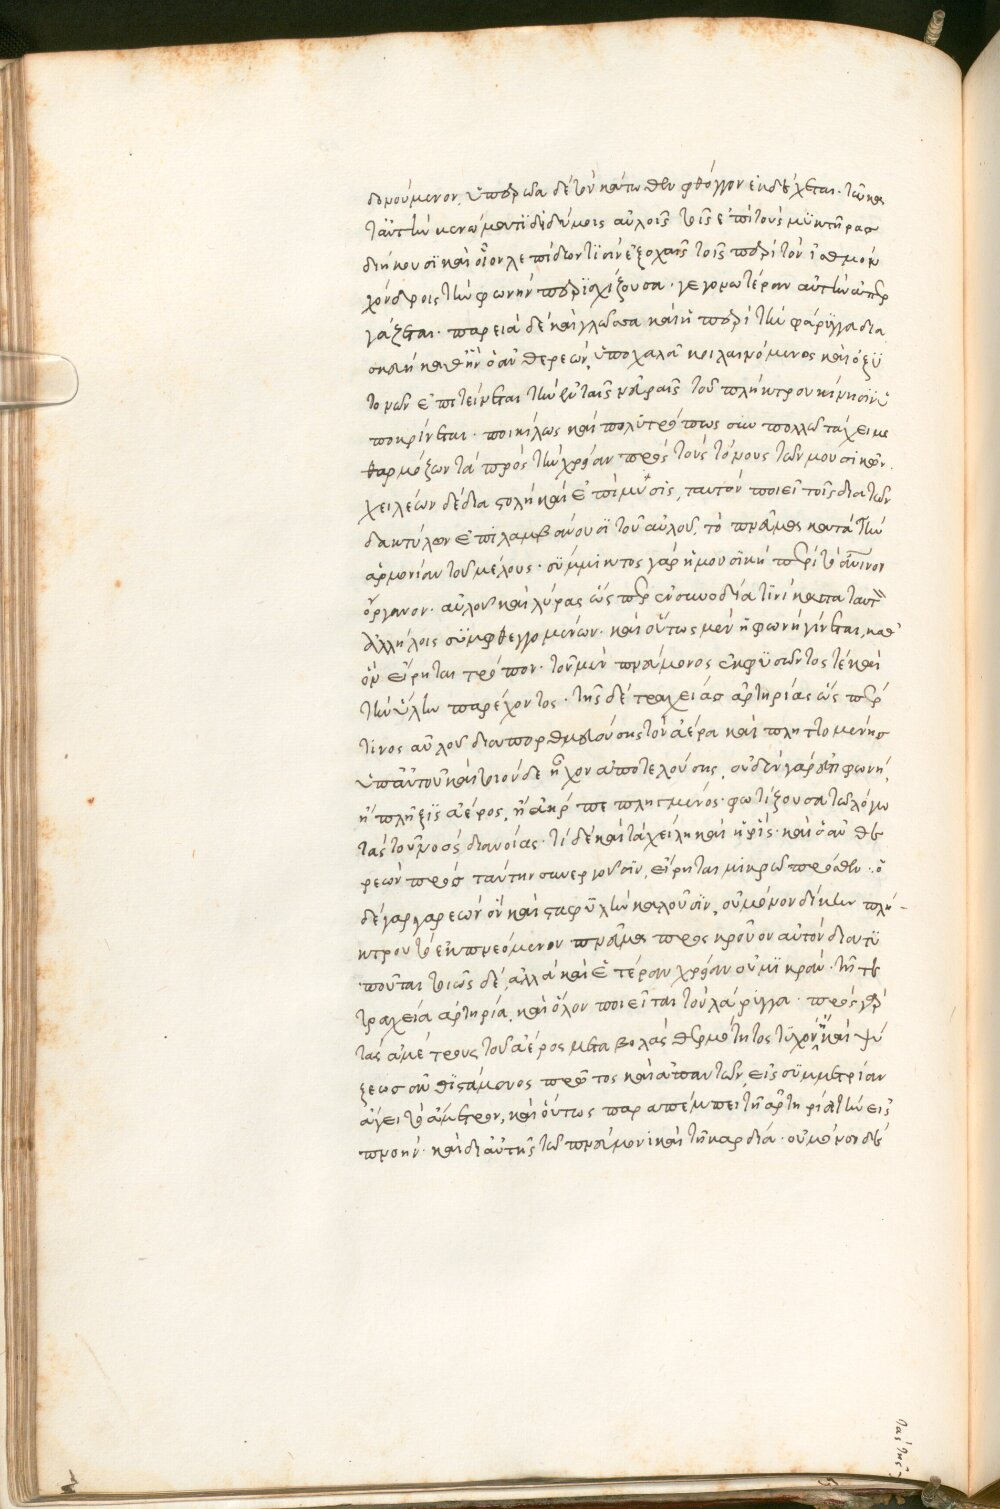 δονούμενον, ὑπερῴα δὲ τὸν κάτωθεν φθόγγον ἐκδέχεται· τῷ κα
τ' αὐτὴν κενώματι δὲ διδύμοις αὐλοῖς τοῖς ἐπὶ τοὺς μυκτῆρας
διήκουσι καὶ οἷον λεπίδων τισὶν ἐξοχαῖς τοῖς περὶ τὸν ἰσθμὸν
χόνδροις τὴν φωνὴν περισχίζουσα· γεγονωτέραν αὐτὴν ἀπερ
γάζεται· παρειὰ δὲ καὶ γλῶσσα καὶ ἡ περὶ τὴν φάρυγγα δια
σκευὴ καθ' ἣν ὁ ἀνθερεὼν, ὑποχαλᾶται κοιλαινόμενος καὶ ὀξυ
τονῶν ἐπιτείνεται τὴν ἐν ταῖς νευραῖς τοῦ πλήκτρου κίνησιν ὑ
ποκρίνεται· ποικίλως καὶ πολυτρόπως σὺν πολλῷ τάχει με
θαρμόζων τὰ πρὸς τὴν χρείαν πρὸς τοὺς τόνους τῶν μουσικῶν.
χειλέων δὲ διαστολὴ καὶ ἐπίμυσις, ταυτὸν ποιεῖ τοῖς διὰ τῶν
δακτύλων ἐπιλαμβάνουσι τοῦ αὐλοῦ, τὸ πνεῦμα κατὰ τὴν
ἁρμονίαν τοῦ μέλους· σύμμικτος γὰρ ἡ μουσικὴ περὶ τὸ ἀνθρώπινον
ὄργανον· αὐλοῦ καὶ λύρας ὥσπερ ἐν συνῳδίᾳ τινὶ κατὰ ταυτὸν
ἀλλήλοις συμφθεγγομένων· καὶ οὕτως μὲν ἡ φωνὴ γίνεται, καθ'
ὃν εἴρηται τρόπον· τοῦ μὲν πνεύμονος ἐκφυσῶντος τὲ καὶ
τὴν ὕλην παρέχοντος· τῆς δὲ τραχείας ἀρτηρίας ὥσπερ
τινος αὐλοῦ διαπορθμευούσης τὸν ἀέρα καὶ πληττομένης
ὑπ' αὐτοῦ καὶ τοιόνδε ἦχον ἀποτελούσης, οὐδὲν γάρ ἐστι φωνὴ,
ἢ πλῆξις ἀέρος, ἢ ἀήρ πε πλησμένος· φωτίζουσα τῷ λόγῳ
τὰς τοῦ νοὸς διανοίας· τί δὲ καὶ τὰ χείλη καὶ ἡ ῥίς· καὶ ὁ ἀνθε
ρεὼν πρὸς ταύτην συνεργοῦσιν, εἴρηται μικρῷ πρόσθεν· ὁ
δὲ γαργαρεὼν ὃν καὶ σταφυλὴν καλοῦσιν, οὐ μόνον δίκην πλή-
κτρου τὸ ἐκπνεόμενον πνεῦμα προσκροῦον αὐτὸν διατυ
ποῦται τοιῶσδε, ἀλλὰ καὶ ἑτέραν χρείαν οὐ μικρὰν· τῇ τε
τραχείᾳ ἀρτηρίᾳ, καὶ ὅλον ποιεῖται τοῦ λάρυγγα· πρὸς γὰρ
τὰς ἀμέτρους τοῦ ἀέρος μεταβολὰς θερμότητος τυχὸν ἢ καὶ ψύ
ξεως ἀνθιστάμενος πρῶτος καὶ ἀπαντῶν, εἰς συμμετρίαν
ἄγει τὸ ἄμετρον, καὶ οὕτως παραπέμπει τῇ ἀρτηρίᾳ τὴν εἰσ
πνοήν· καὶ δι' αὐτῆς τῷ πνεύμονι καὶ τῇ καρδίᾳ· οὐ μόνον δὲ
τὰς τῆς